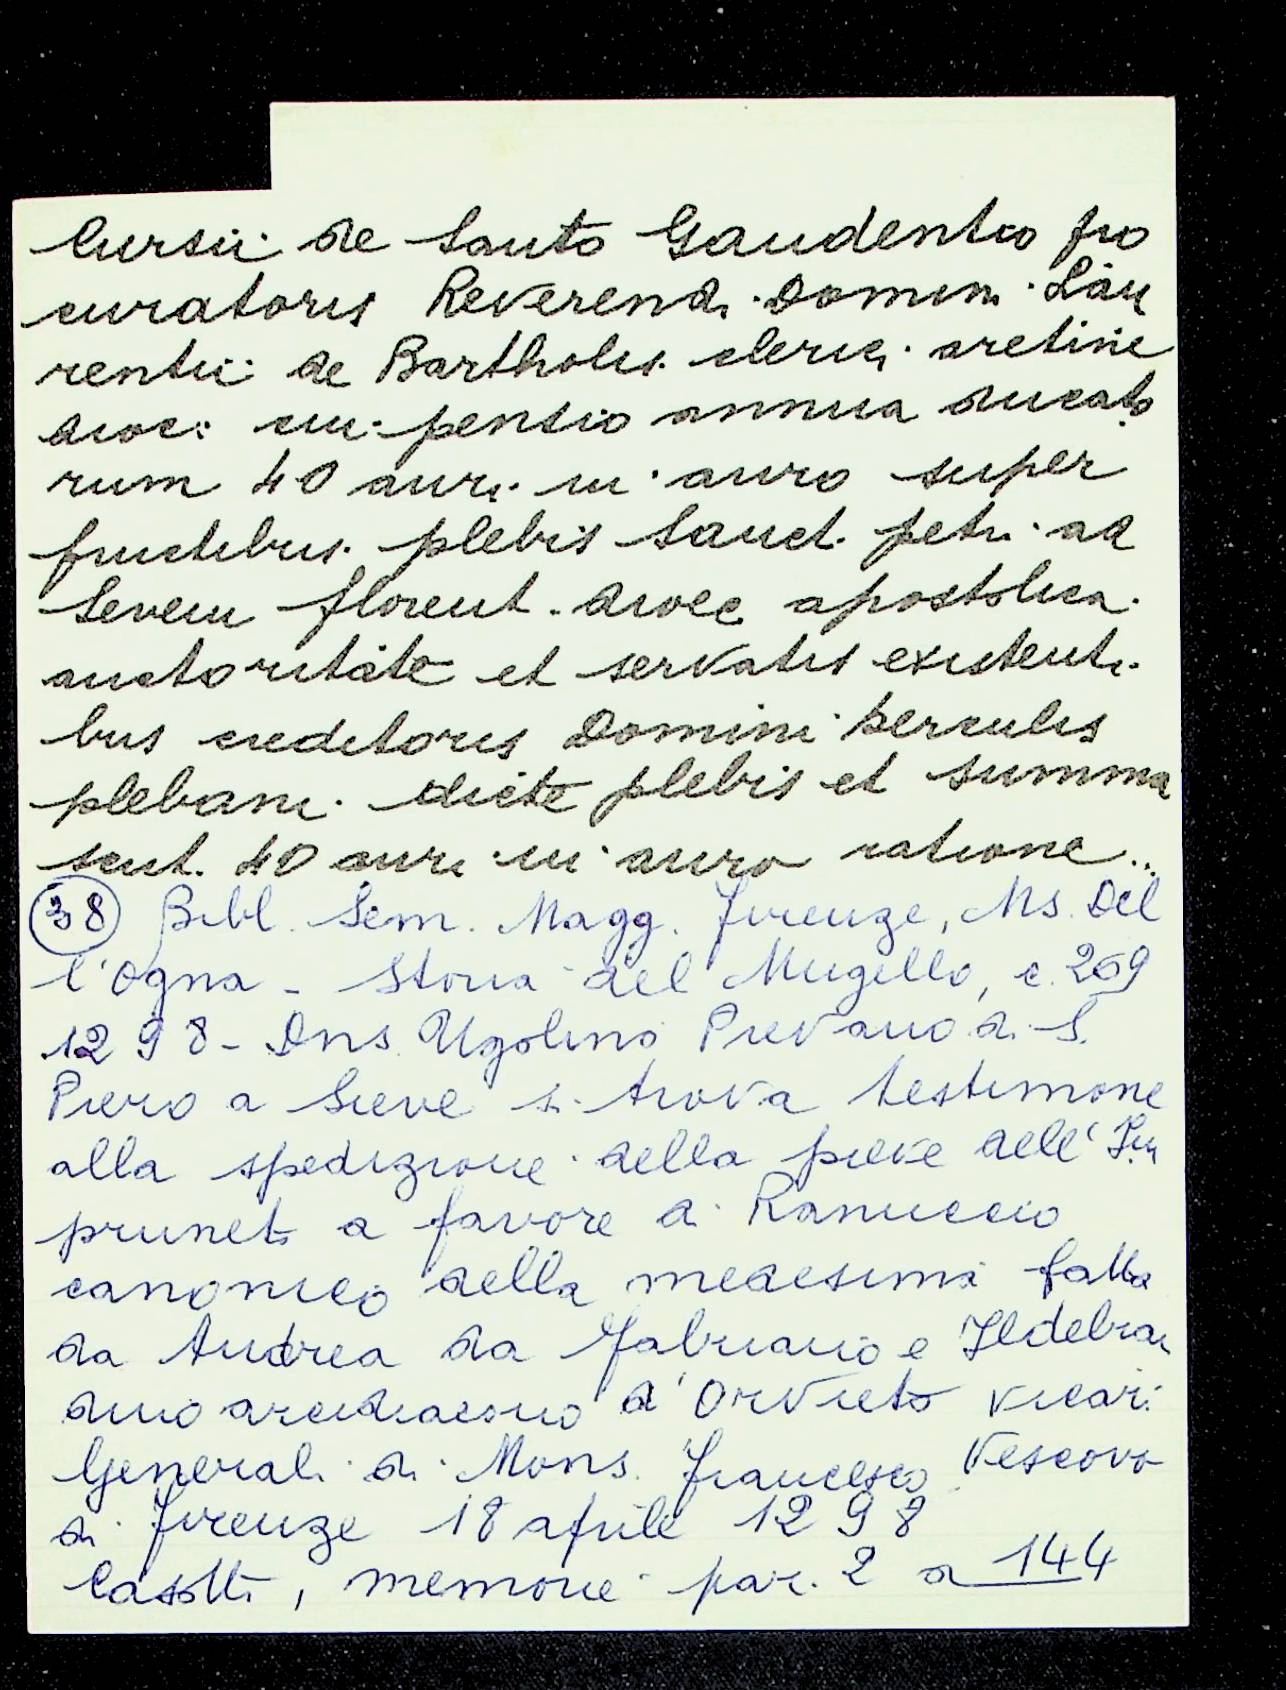 Cursii de Santo Gaudentio pro
curatoris Reverendi Domini Lau
rentii de Bartholis clerici aretine
dioc: cui pensio annua ducato
rum 40 auri in auro super
fructibus plebis Sanct. petri ad
Sevem florent. dioec apostolica
auctoritate et servatis existenti
bus creditoris Domini herculis
plebani dicte plebis et summa
scut. 40 auri in auro ratione...
(38) Bibl. Sem. Magg. Firenze, Ms. Del
l'Ogna - Storia del Mugello, c. 269
1298 - Dns Ugolino Pievano di S.
Piero a Sieve si trova testimone
alla spedizione della pieve dell'Im
pruneta a favore di Ranuccio
canonico della medesima fatta
da Andrea da Fabriano e Ildebran
dino arcidiacono d'Orvieto vicari
Generali di Mons. Francesco Vescovo
di Firenze 18 aprile 1298
Casotti, memorie par. 2 a 144